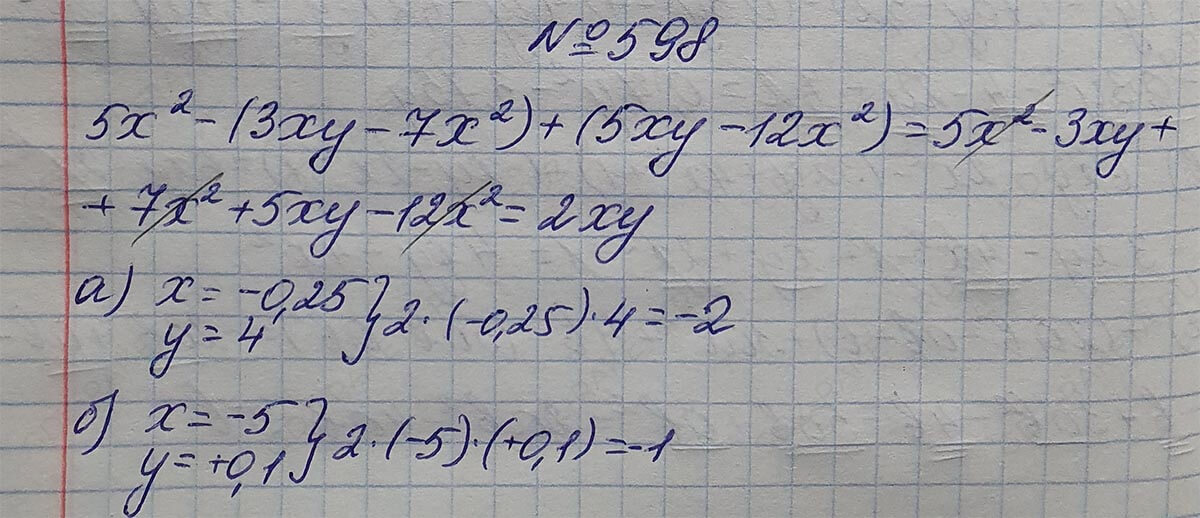 №598
5x² - (3xy - 7x²) + (5xy - 12x²) = 5x² - 3xy +
+ 7x² + 5xy - 12x² = 2xy
а) x = -0,25
y = 4 } 2·(-0,25)·4 = -2
б) x = -5
y = +0,1 } 2·(-5)·(+0,1) = -1